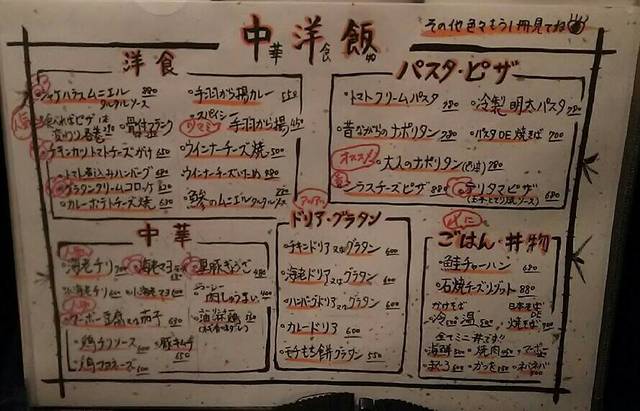 中華 洋食 飯
その他色々もう1冊見てね
洋食
シャケハラスムニエル 880
タルタルソース
手羽から揚カレー 550
人気
骨付フランク
スペイン
手羽から揚
チキンカツトマトチーズがけ 650
ウインナーチーズ焼 500
トマト煮込みハンバーグ 680
ウインナーチーズいため 580
グラタンクリームコロッケ
鯵のムニエルタルタルソース
カレーポテトチーズ焼 630
パスタ・ピザ
トマトクリームパスタ 780
冷製明太パスタ 780
昔ながらのナポリタン 780
パスタDE焼そば 700
オススメ
大人のナポリタン(ピリ辛) 780
シラスチーズピザ 880
テリタマピザ 680
中華
人気
海老チリ
海老マヨ
黒豚ぎょうざ 480
小海老チリ 600
小海老マヨ 600
ジューシー
肉しゅうまい 400
人気
マーボー豆腐又は茄子 680
油淋鶏
鶏チリソース 600
豚キムチ 650
鶏マヨネーズ 600
アツアツ
ドリア・グラタン
チキンドリア又はグラタン 600
海老ドリア又はグラタン 600
ハンバーグドリア又はグラタン 600
カレードリア 600
モチもち餅グラタン 550
〆に
ごはん・丼物
鮭チャーハン 680
石焼チーズリゾット 880
かけそば
日本そば
DE
冷 温
焼そば
全てミニ丼です!!
海鮮 焼肉 マーボー
まぐろ かつを ネバネバ